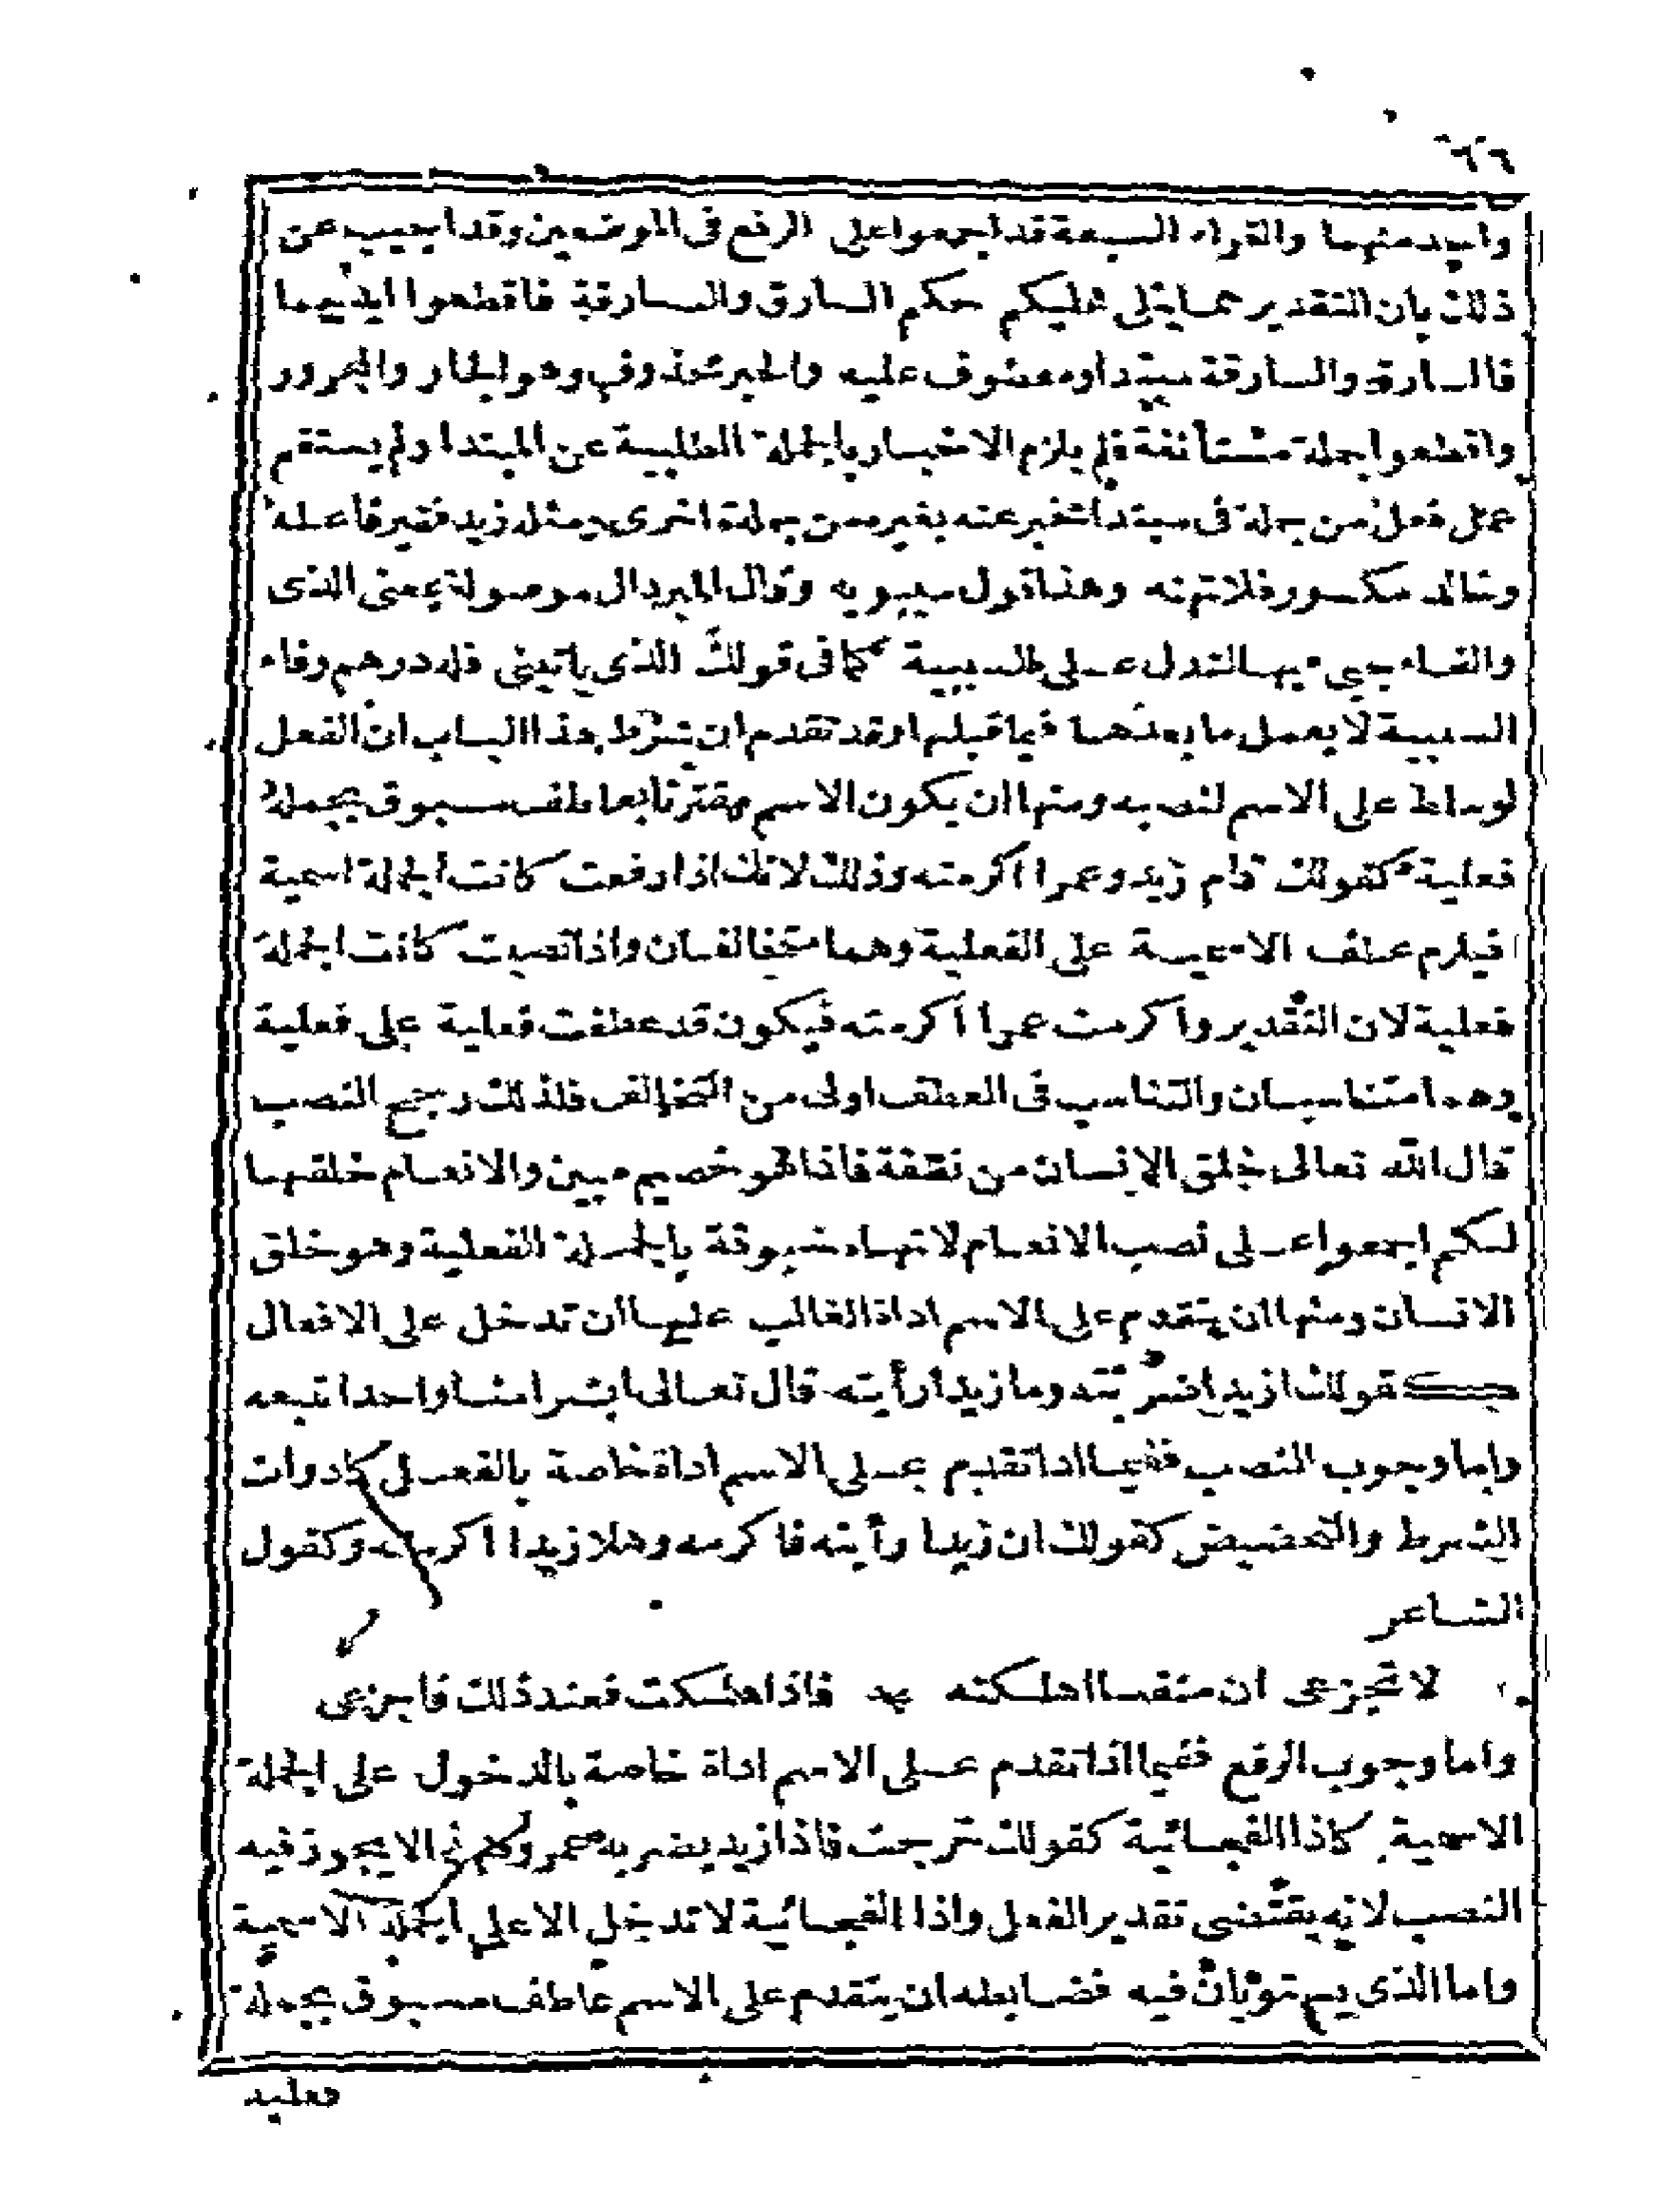 ٦٦
واحد منهما والقراء السبعة قد اجمعوا على الرفع فى الموضعين وقد اجيب عن
ذلك بان التقدير مما يتلى عليكم حكم السارق والسارقة فاقطعوا ايديهما
فالسارق والسارقة مبتدا ومعطوف عليه والخبر محذوف وهو الجار والمجرور
واقطعوا جملة مستأنفة فلم يلزم الاخبار بالجملة الطلبية عن المبتدا ولم يستقم
عمل فعل من جملة فى مبتدا مخبر عنه بغيره من جملة اخرى ومثله زيد فقير فاعطه
وخالد مكسور فلا تهنه وهذا قول سيبويه وقال المبرد ال موصولة بمعنى الذى
والفاء جىء بها لتدل على السببية كما فى قولك الذى ياتينى فله درهم وفاء
السببية لا يعمل ما بعدها فيما قبلها وقد تقدم ان شرط هذا الباب ان الفعل
لو سلط على الاسم لنصبه ومنها ان يكون الاسم مقترنا بعاطف مسبوق بجملة
فعلية كقولك قام زيد وعمرا اكرمته وذلك لانك اذا رفعت كانت الجملة اسمية
فيلزم عطف الاسمية على الفعلية وهما متخالفان واذا نصبت كانت الجملة
فعلية لان التقدير واكرمت عمرا اكرمته فيكون قد عطفت فعلية على فعلية
وهما متناسبان والتناسب فى العطف اولى من التخالف فلذلك رجح النصب
قال الله تعالى خلق الانسان من نطفة فاذا هو خصيم مبين والانعام خلقها
لكم اجمعوا على نصب الانعام لانها مسبوقة بالجملة الفعلية وهو خلق
الانسان ومنها ان يتقدم على الاسم اداة الغالب عليها ان تدخل على الافعال
كقولك ازيدا ضربته وما زيدا رأيته قال تعالى ابشرا منا واحدا نتبعه
واما وجوب النصب ففيما اذا تقدم على الاسم اداة خاصة بالفعل كادوات
الشرط والتحضيض كقولك ان زيدا رأيته فاكرمه وهلا زيدا اكرمته وكقول
الشاعر
لا تجزعى ان منفسا اهلكته * فاذا هلكت فعند ذلك فاجزعى
واما وجوب الرفع ففيما اذا تقدم على الاسم اداة خاصة بالدخول على الجملة
الاسمية كاذا الفجائية كقولك خرجت فاذا زيد يضربه عمرو لا يجوز فيه
النصب لانه يقتضى تقدير الفعل واذا الفجائية لا تدخل الا على الجملة الاسمية
واما الذى يستويان فيه فضابطه ان يتقدم على الاسم عاطف مسبوق بجملة
فعلية